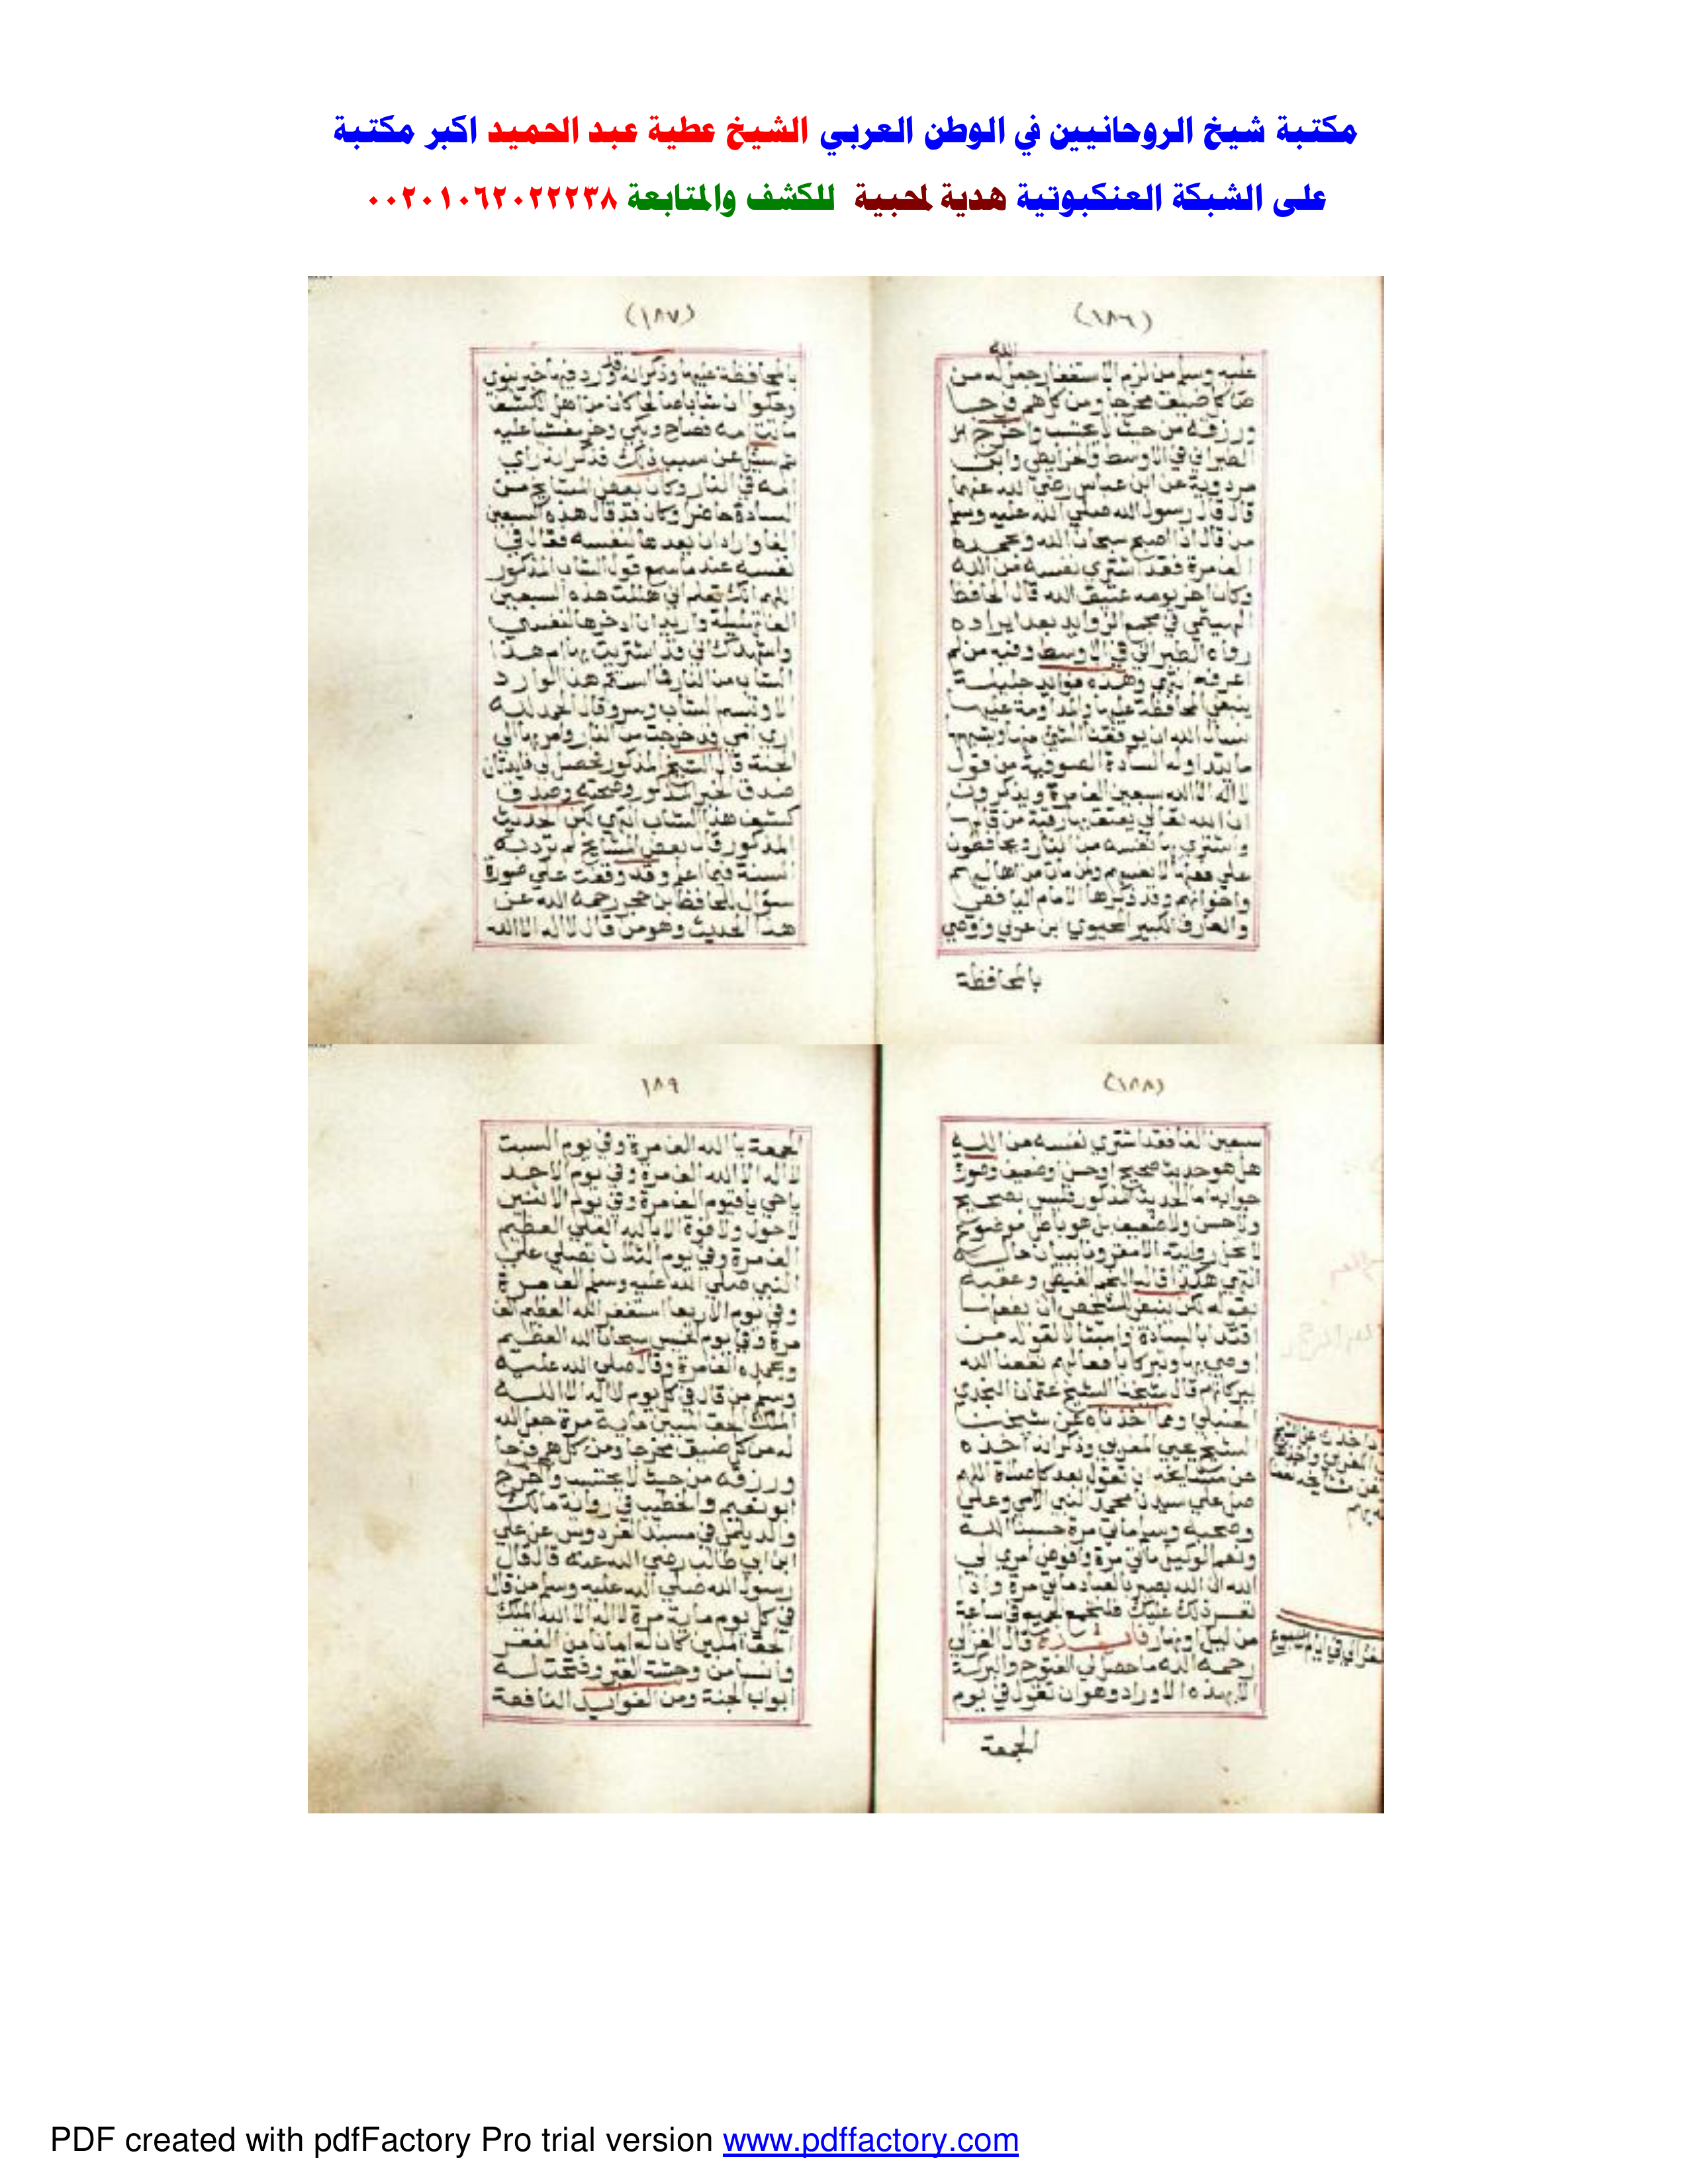 مكتبة شيخ الروحانيين في الوطن العربي الشيخ عطية عبد الحميد اكبر مكتبة
على الشبكة العنكبوتية هدية لمحبية للكشف والمتابعة ٠٠٢٠١٠٦٢٠٢٢٢٣٨
(١٨٦)
الله
عليه وسلم من لزم الاستغفار جعل له من
كل ضيق مخرجا ومن كل هم فرجا
ورزقه من حيث لا يحتسب واخرج
الطبراني في الاوسط والخرايطي وابن
مردوية عن ابن عباس رضي الله عنهما
قال قال رسول الله صلي الله عليه وسلم
من قال اذا اصبح سبحان الله وبحمده
الف مرة فقد اشتري نفسه من الله
وكان اخر يومه عتيق الله قال الحافظ
الهيتمي في مجمع الزوايد بعد ايراده
رواه الطبراني في الاوسط وفيه من لم
اعرفه انتهي وهذه فوايد جليلة
ينبغي المحافظة عليها والمداومة عليها
نسال الله ان يوفقنا
ما يتداوله السادة الصوفية من قول
لا اله الا الله سبعين الف مرة ويذكرون
ان الله تعالي يعتق بها رقبة من قالها
واشتري بها نفسه من النار ويحافظون
علي فعلها لانفسهم ولمن مات من اهاليهم
واخوانهم وقد ذكرها الامام اليافعي
والعارف الكبير المحيوي ابن عربي واوصي
بالمحافظة
(١٨٧)
بالمحافظة عليها وذكر انه قد ورد فيها خبر نبوي
وحكوا ان شابا صالحا كان من اهل الكشف
ماتت امه فصاح وبكي وخر مغشيا عليه
ثم سئل عن سبب ذلك فذكر انه راي
امه في النار وكان بعض المشايخ من
السادة حاضرا وكان قد قال هذه السبعين
الفا واراد ان يعدها لنفسه فقال في
نفسه عند ما سمع قول الشاب المذكور
اللهم انك تعلم اني هللت هذه السبعين
الف تهليلة واريد ان ادخرها لنفسي
واشهدك اني قد اشتريت بها ام هذا
الشاب من النار فما استتم هذا الوارد
الا وتبسم الشاب وسر وقال الحمد لله
اري امي قد خرجت من النار وامر بها الي
الجنة قال الشيخ المذكور فحصل لي فايدتان
صدق الخبر المذكور وصحته وصدق
كشف هذا الشاب انتهي لكن الحديث
المذكور قال بعض المشايخ لم ترد به
السنة فيما اعلم وقد وقفت علي صورة
سؤال للحافظ ابن حجر رحمه الله عن
هذا الحديث وهو من قال لا اله الا الله
(١٨٨)
سبعين الفا فقد اشتري نفسه من الله
هل هو حديث صحيح او حسن او ضعيف وصورة
جوابه اما الحديث المذكور فليس بصحيح
ولا حسن ولا ضعيف بل هو باطل موضوع
لا تحل روايته الا مقرونا ببيان حاله
انتهي هكذا قاله النجم الغيطي وعقبه
بقوله لكن ينبغي للشخص ان يفعلها
اقتدا بالسادة وامتثالا لقول من
اوصي بها وتبركا بافعالهم نفعنا الله
ببركاتهم قال شيخنا الشيخ عثمان النجدي
الحنبلي ومما اخذناه عن شيخنا
الشيخ المغربي وذكر انه اخذه
عن مشايخه ان تقول بعد كل صلاة اللهم
صل علي سيدنا محمد النبي الامي وعلي
وصحبه وسلم مرة حسبنا الله
ونعم الوكيل مرة وافوض امري الي
الله ان الله بصير بالعباد مرة واذا
تعسر ذلك عليك فلتجمع الجميع في ساعة
من ليل او نهار فايدة قال الغزالي
رحمه الله ما حصل لي الفتوح والبركة
الا بهذه الاوراد وهو ان تقول في يوم
الجمعة
١٨٩
الجمعة يا الله الف مرة وفي يوم السبت
لا اله الا الله الف مرة وفي يوم الاحد
يا حي يا قيوم الف مرة وفي يوم الاثنين
لا حول ولا قوة الا بالله العلي العظيم
الف مرة وفي يوم الثلاث تصلي علي
النبي صلي الله عليه وسلم الف مرة
وفي يوم الاربعا استغفر الله العظيم الف
مرة وفي يوم الخميس سبحان الله العظيم
وبحمده الف مرة وقال صلي الله عليه
وسلم من قال في كل يوم لا اله الا الله
الملك الحق المبين ماية مرة جعل الله
له من كل ضيق مخرجا ومن كل هم فرجا
ورزقه من حيث لا يحتسب واخرج
ابو نعيم والخطيب في رواية مالك
والديلمي في مسند الفردوس عن علي
ابن ابي طالب رضي الله عنه قال قال
رسول الله صلي الله عليه وسلم من قال
في كل يوم ماية مرة لا اله الا الله الملك
الحق المبين كان له امانا من الفقر
وانسا من وحشة القبر وفتحت له
ابواب الجنة ومن الفوايد النافعة
PDF created with pdfFactory Pro trial version www.pdffactory.com